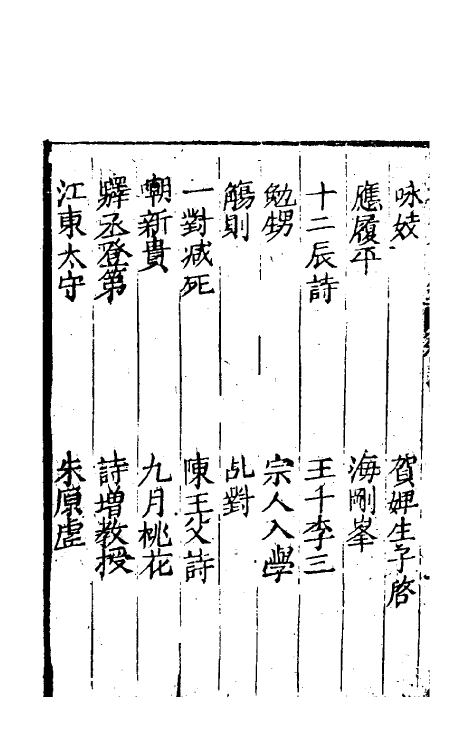 咏妓　賀婢生子啓
應履平　海剛峯
十二辰詩　王千李三
勉甥　宗人入學
觴則　乩對
一對减死　陳王父詩
嘲新貴　九月桃花
驛丞登第　詩增教授
江東太守　朱原虛